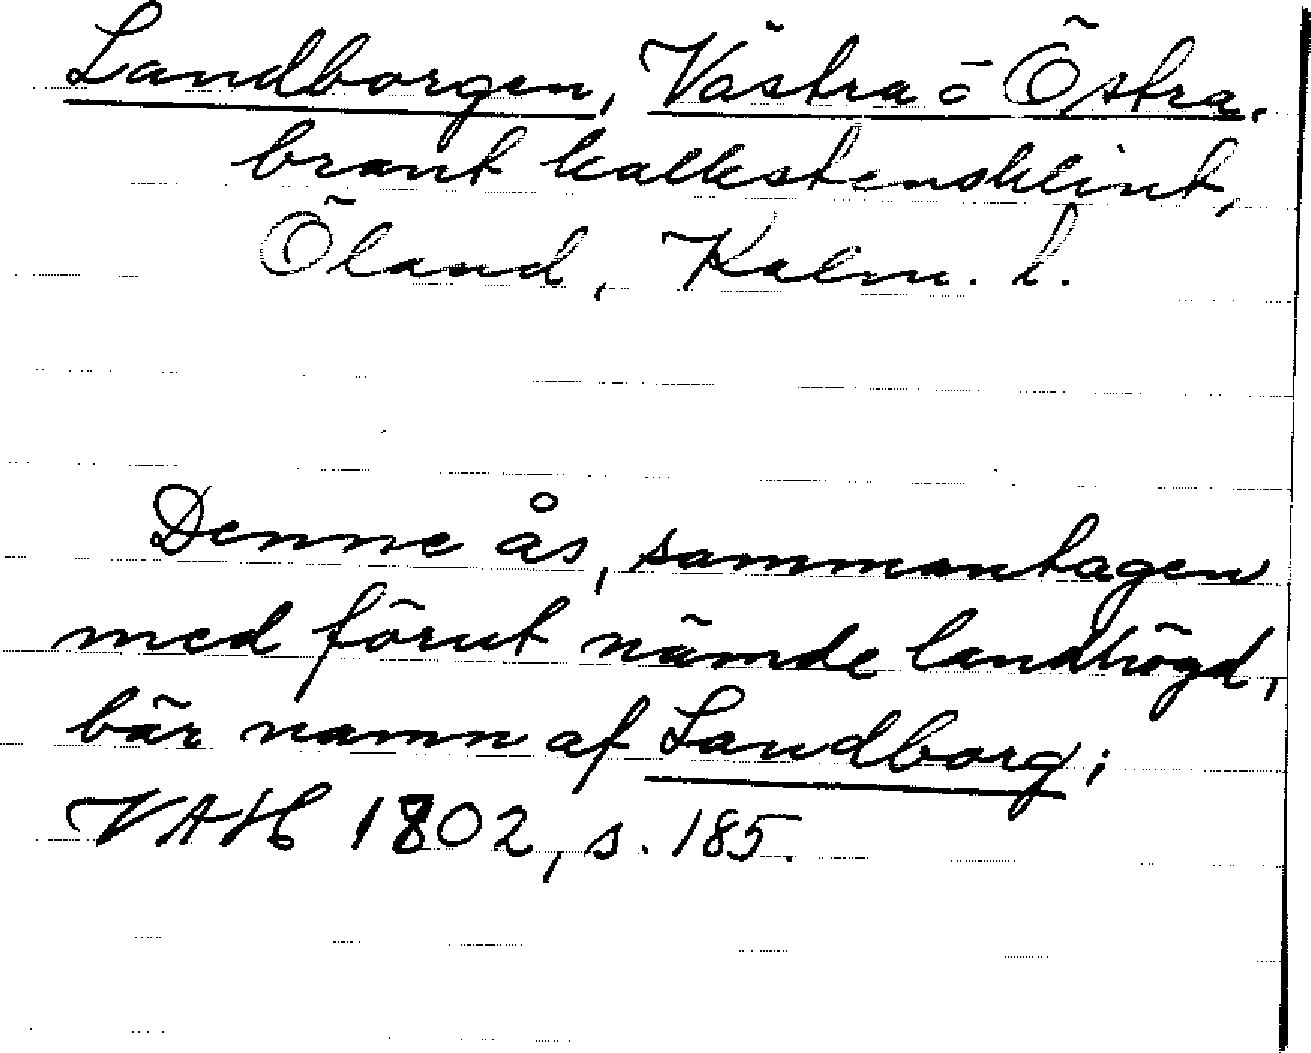 Landborgen, Västra o Östra.
brant kalkstensklint,
Öland, Kalm. l.
Denne ås, sammantagen
med förut nämde landhögd,
bär namn af Landborg;
VAH 1802, s. 185.